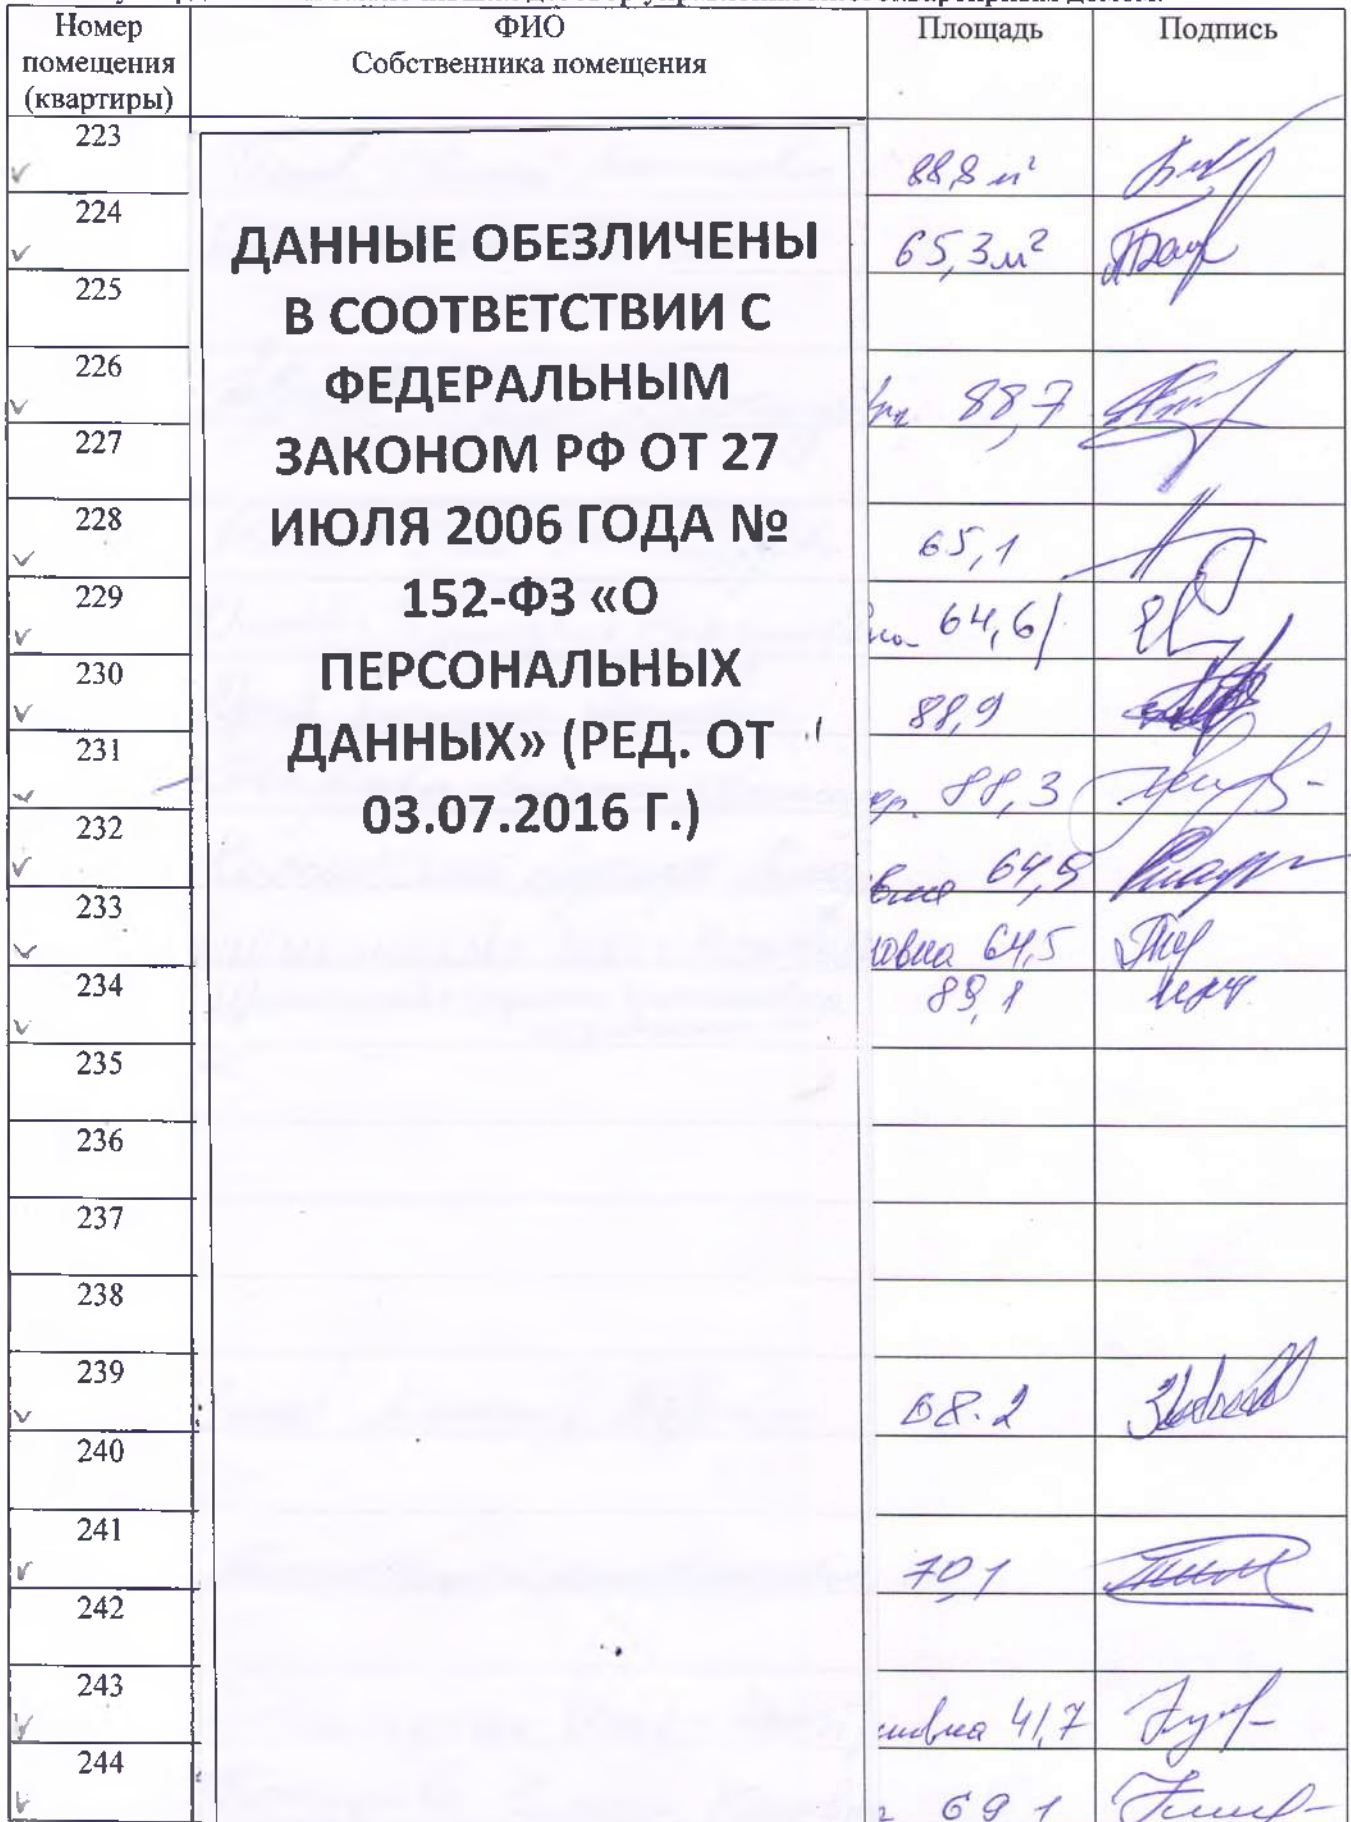 Номер помещения (квартиры)
ФИО
Собственника помещения
Площадь
Подпись
ДАННЫЕ ОБЕЗЛИЧЕНЫ
В СООТВЕТСТВИИ С
ФЕДЕРАЛЬНЫМ
ЗАКОНОМ РФ ОТ 27
ИЮЛЯ 2006 ГОДА №
152-ФЗ «О
ПЕРСОНАЛЬНЫХ
ДАННЫХ» (РЕД. ОТ
03.07.2016 Г.)
223 88,8 м²
224 65,3 м²
225
226 88,7
227
228 65,1
229 64,6
230 88,9
231 88,3
232 64,5
233 овна 64,5
234 89,1
235
236
237
238
239 68.2
240
241 70,1
242
243 41,7
244 69 1